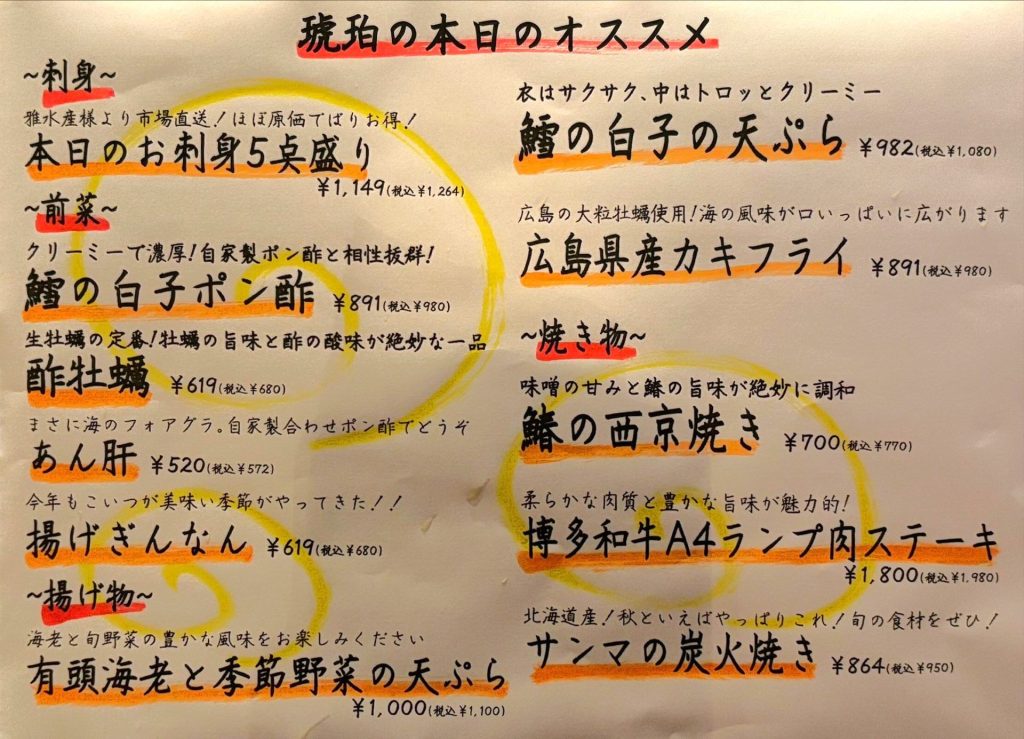 琥珀の本日のオススメ
~刺身~
雅水産様より市場直送!ほぼ原価でばりお得!
本日のお刺身5点盛り
¥1,149(税込¥1,264)
~前菜~
クリーミーで濃厚!自家製ポン酢と相性抜群!
鱈の白子ポン酢 ¥891(税込¥980)
生牡蠣の定番!牡蠣の旨味と酢の酸味が絶妙な一品
酢牡蠣 ¥619(税込¥680)
まさに海のフォアグラ。自家製合わせポン酢でどうぞ
あん肝 ¥520(税込¥572)
今年もこいつが美味い季節がやってきた!!
揚げぎんなん ¥619(税込¥680)
~揚げ物~
海老と旬野菜の豊かな風味をお楽しみください
有頭海老と季節野菜の天ぷら
¥1,000(税込¥1,100)
衣はサクサク、中はトロッとクリーミー
鱈の白子の天ぷら ¥982(税込¥1,080)
広島の大粒牡蠣使用!海の風味が口いっぱいに広がります
広島県産カキフライ ¥891(税込¥980)
~焼き物~
味噌の甘みと鰆の旨味が絶妙に調和
鰆の西京焼き ¥700(税込¥770)
柔らかな肉質と豊かな旨味が魅力的!
博多和牛A4ランプ肉ステーキ
¥1,800(税込¥1,980)
北海道産!秋といえばやっぱりこれ!旬の食材をぜひ!
サンマの炭火焼き ¥864(税込¥950)